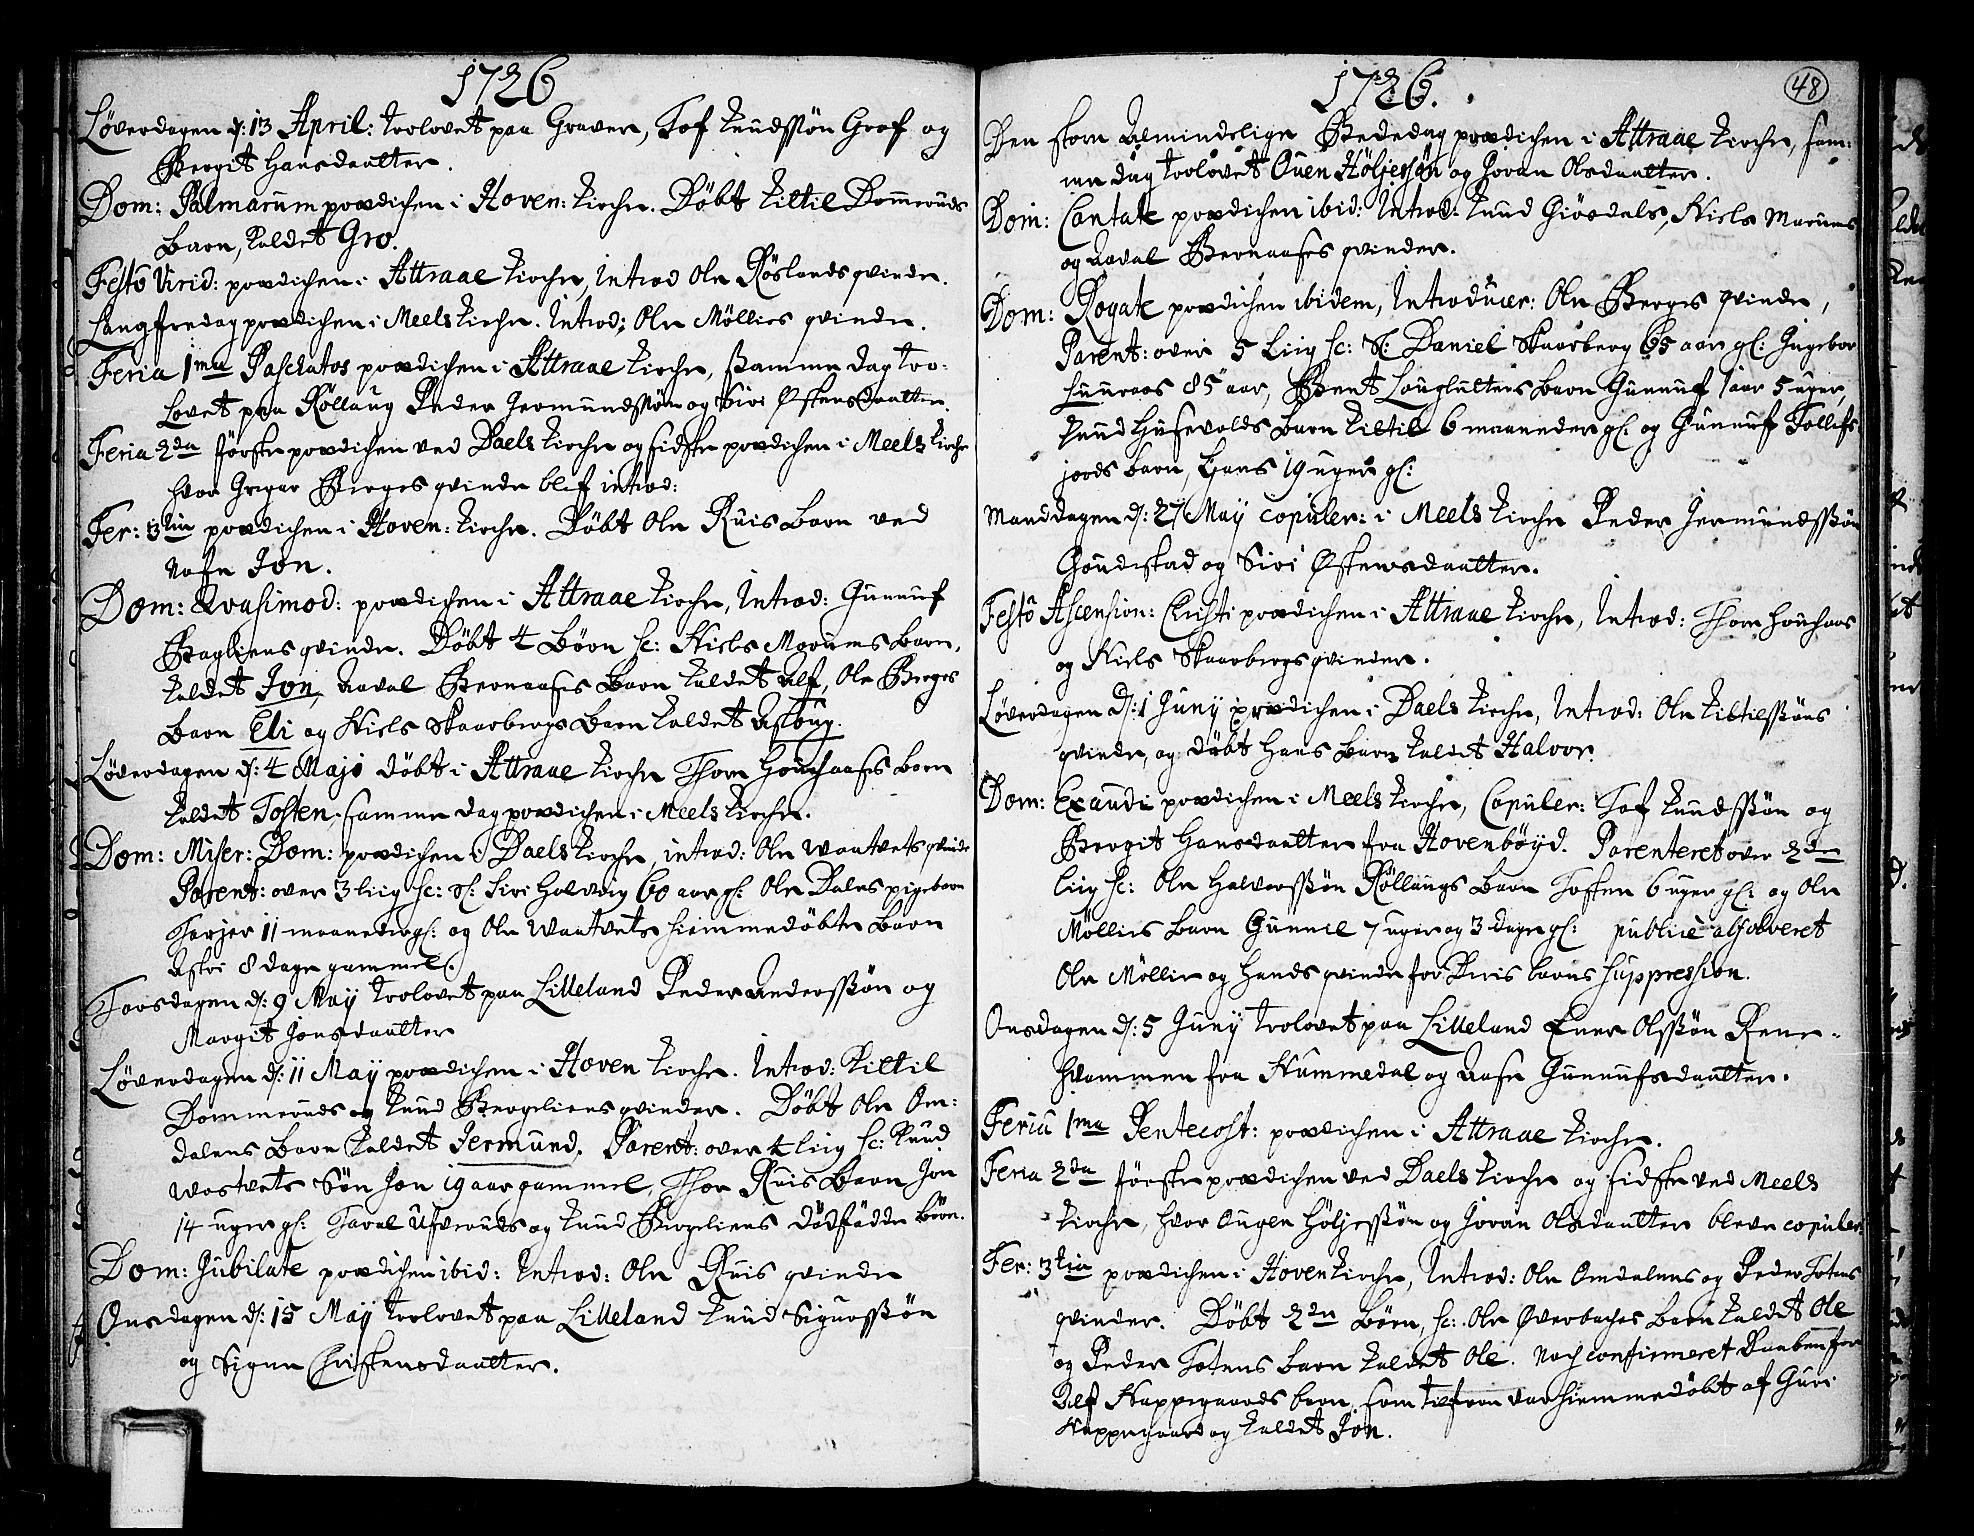 1726
Løverdagen d: 13 April: trolovet paa Graver, Tof Knudssøn Graf og
Bergit Hansdaatter.
Dom: Palmarum prædichen i Hoven: Kirche. Døbt Kittil Dommeruds
Barn, kaldet Gro.
Festo Virid: prædichen i Attraae Kirche, Introd Ole Røslands qvinde.
Langfredag prædichen i Meels Kirche. Introd: Ole Møllies qvinde.
Feria 1ma Paschatos prædichen i Attraae Kirche, samme dag tro-
lovet paa Rollaug Peder Jermundssøn og Siri Østensdaatter.
Feria 2da første prædichen ved Daels Kirche og sidste prædichen i Meels Kirche
hvor Gregar Berges qvinde blef introd:
Fer: 3tia prædichen i Hoven: Kirche. Døbt Ole Ruis Barn ved
Nafn Jon.
Dom: Qvasimod: prædichen i Attraae Kirche, Introd: Gunnuf
Bagliens qvinde. Døbt 4 Børn sc: Niels Marums Barn,
kaldet Jon, Aaval Bernaases Barn kaldet Alf, Ole Berges
Barn Eli og Niels Skaarbergs Barn kaldet Astoug.
Løverdagen d: 4 Majo døbt i Attraae Kirche Thore Houchaases Barn
kaldet Tosten, samme dag prædichen i Meels Kirche.
Dom: Miser: Dom: prædichen i Daels Kirche, introd: Ole Waatvets qvinde
Parent: over 3 liig sc: S: Siri Holvig 60 aar gl: Ole Dales pigebarn
Tarjer 11 maaneder gl: og Ole Waatvets hiemmedøbte Barn
Astri 8 dage gammel.
Torsdagen d: 9 May trolovet paa Lilleland Peder Anderssøn og
Margit Jonsdaatter
Løverdagen d: 11 May prædichen i Hoven Kirche. Introd: Kittil
Dommeruds og Knud Bergeliens qvinder. Døbt Ole Om-
dalens Barn kaldet Jermund. Parent: over 4 liig sc: Knud
Wostvets Søn Jon 19 aar gammel, Thor Ruis Barn Jon
14 uger gl: Taral Ufveruds og Knud Bergeliens dødfødde børn.
Dom: Jubilate prædichen ibid: Introd: Ole Ruis qvinde
Onsdagen d: 15 May trolovet paa Lilleland Knud Sigurssøn
og Signe Christensdaatter.
1726.
48
Den store Almindelige Bededag prædichen i Attraae Kirche, sam-
me dag trolovet Ouen Høljessøn og Joran Olsdaatter.
Dom: Cantate prædichen ibid: Introd: Knud Giøsdals, Niels Marums
og Aaval Bernaases qvinder.
Dom: Rogate prædichen ibidem, Introducer: Ole Berges qvinde,
Parent: over 5 Liig sc: S: Daniel Skaarberg 65 aar gl: Ingebor
Luuraas 85 aar, Bent Barn Gunnuf 1 aar 5 uger,
Knud Husevolds Barn Kittil 6 maaneder gl: og Gunnuf Tollefs-
jords barn, Hans 19 uger gl:
Manddagen d: 27 May copuler: i Meels Kirche Peder Jermundssøn
Goudestad og Siri Østensdaatter.
Festo Ascension: Christi prædichen i Attraae Kirche, Introd: Thore Houchaas
og Niels Skaarbergs qvinder.
Løverdagen d: 1 Juny prædichen i Daels Kirche, Introd: Ole Kittilssøns
qvinde, og døbt hans Barn kaldet Halvor.
Dom: Exaudi prædichen i Meels Kirche, Copuler: Tof Knudssøn og
Bergit Hansdaatter fra Hovenbøyd. Parenteret over 2de
liig sc: Ole Halvorssøn Røllaugs Barn Tosten 6 uger gl: og Ole
Møllies Barn Gunnil 7 uger og 3 dage gl: publice absolveret
Ole Møllie og hands qvinde for Deris barns suppression.
Onsdagen d: 5 Juny trolovet paa Lilleland Ener Olssøn Rene-
hvammen fra Nummedal og Aase Gunnufsdaatter.
Feria 1ma Pentecost: prædichen i Attraae Kirche.
Feria 2da første prædichen ved Daels Kirche og sidste ved Meels
Kirche, hvor Ougen Høljessøn og Joran Olsdaatter bleve copuler:
Fer: 3tia prædichen i Hoven Kirche, Introd: Ole Omdalens og Peder Totens
qvinder. Døbt 2de Børn, sc: Ole Øverbøches Barn kaldet Ole
og Peder Totens Barn kaldet Ole. Noch confirmeret Daaben for
Alf Nappegaards barn, som tilforn var hiemmedøbt af Guri
Nappegaard og kaldet Jon.